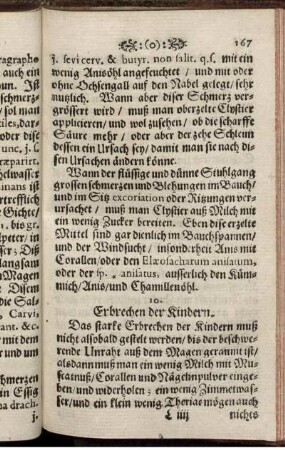 ·❧:(o):❧· 167
ʒ. sevi cerv. & butyr. non salit. q.s. mit ein
wenig Anisöhl angefeuchtet / und mit oder
ohne Ochsengall auf den Nabel gelegt / sehr
nutzlich. Wann aber diser Schmerz ver-
grössert wird / muß man oberzelte Clystier
applicieren / und wol zusehen / ob die scharffe
Säure mehr / oder aber der zehe Schleim
dessen ein Ursach sey / damit man sie nach di-
sen Ursachen ändern könne.
Wann der flüssige und dünne Stuhlgang
grossen schmerzen und Blehungen im Bauch /
und im Sitz excoriation oder Ritzungen ver-
ursachet / muß man Clystier auß Milch mit
ein wenig Zucker bereiten. Eben dise erzelte
Mittel sind gar dienlich im Bauchspannen /
und der Windsucht / insonderheit Anis mit
Corallen / oder den Elæosacharum anisatum,
oder der sp. anisatus, ausserlich den Küm-
mich / Anis / und Chamillenöhl.
10.
Erbrechen der Kindern.
Das starke Erbrechen der Kindern muß
nicht alsobald gestelt werden / bis der beschwe-
rende Unraht auß dem Magen geraumt ist /
alsdann muß man ein wenig Milch mit Mu-
scatnuß / Corallen und Nägelinpulver einge-
ben / und widerholen; ein wenig Zimmetwas-
ser / und ein klein wenig Theriac mögen auch
L iiij nichts
ragraphe
auch ein
un. Ist
schmerz-
/ sol man
tiles, dar-
oder dise
unc. j. ℞.
ræparirt.
helwasser
inans ist
ertrefflich
e Gichte /
j. bis gr.
lpeter / in
sser; Diß
langsam
n Magen
Disem
die Sal-
Carvi,
ant. &c.
mit dem
chmerzen
in Essig
na drach-
j.